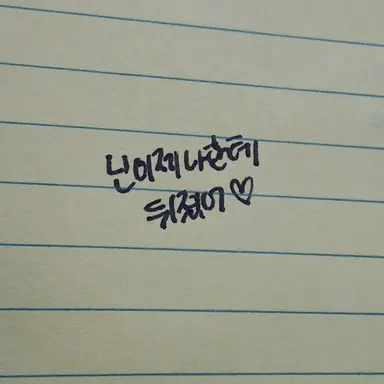 넌이제나한테
뒤졌어♡